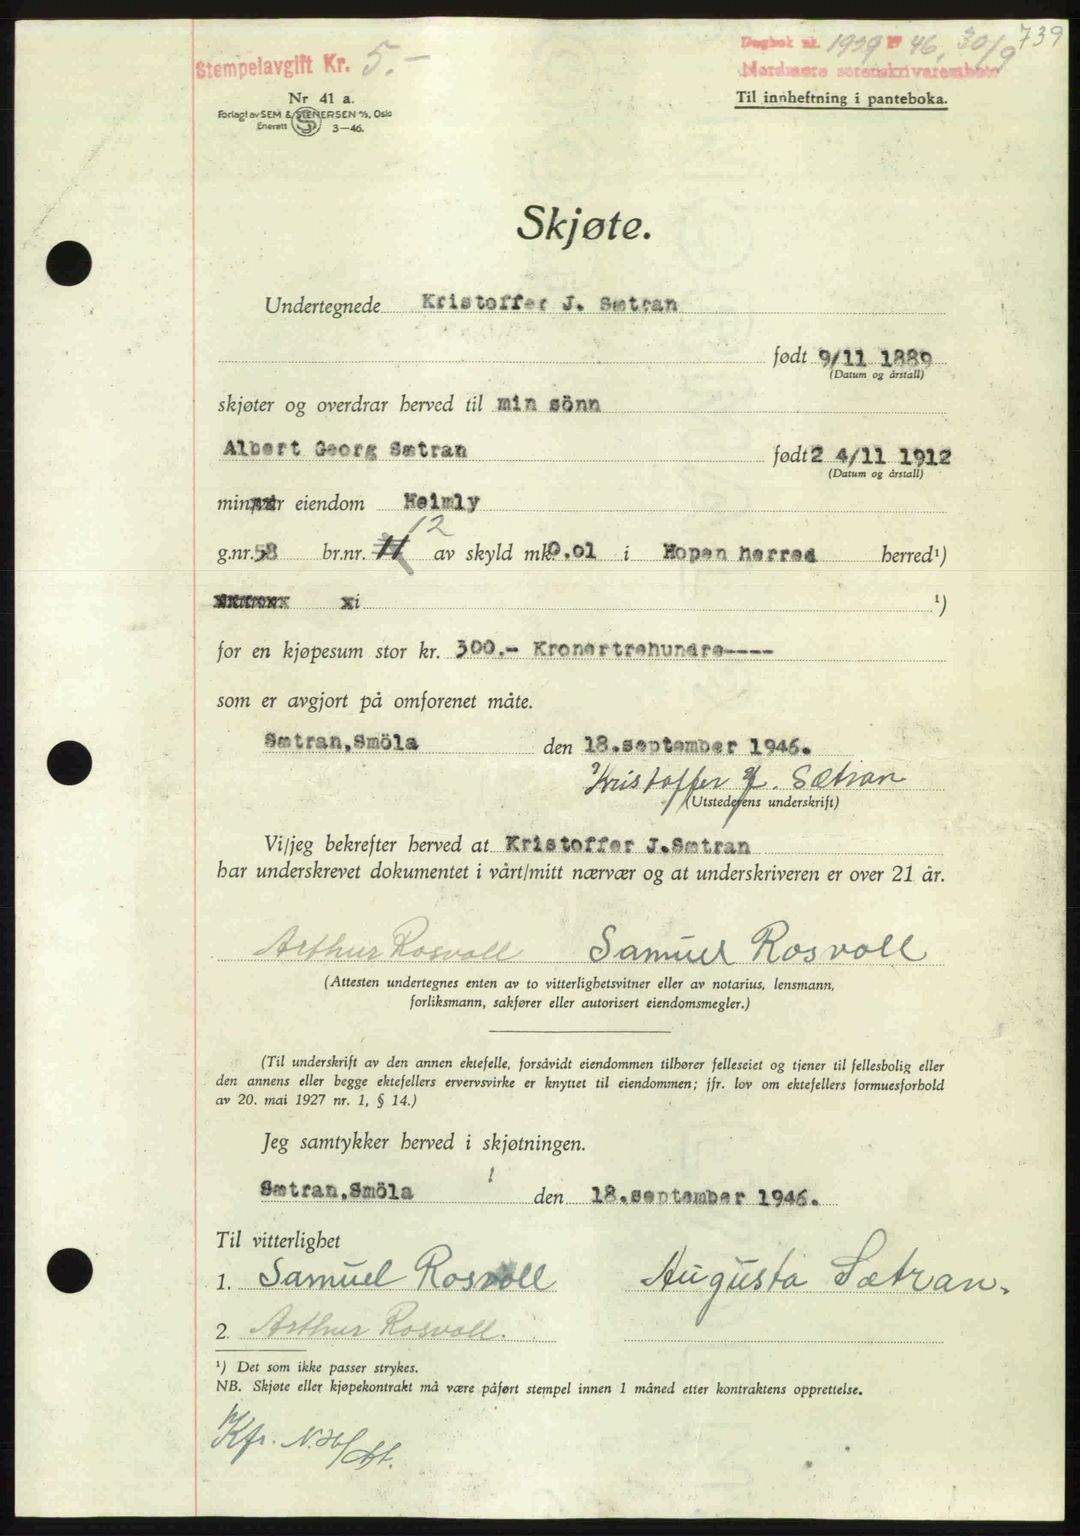 739
Stempelavgift Kr. 5.-
Dagbok nr. 1929 19 46, 30/9
Nordmøre sorenskriverembete
Nr 41 a.
Til innheftning i panteboka.
Forlagt av SEM & STENERSEN A/S, Oslo
Enerett 3-46.
Skjøte.
Undertegnede Kristoffer J. Sætran
født 9/11 1889
(Datum og årstall)
skjøter og overdrar herved til min sönn
Albert Georg Sætran født 2 4/11 1912
(Datum og årstall)
min eiendom Heimly
12
g.nr. 58 br.nr. 11 av skyld mk 0.01 i Hopen herred herred¹)
i ¹)
for en kjøpesum stor kr. 300.- Kronertrehundre----
som er avgjort på omforenet måte.
Sætran,Smöla den 18.september 1946.
Kristoffer J. Sætran
(Utstederens underskrift)
Vi/jeg bekrefter herved at Kristoffer J.Sætran
har underskrevet dokumentet i vårt/mitt nærvær og at underskriveren er over 21 år.
Arthur Rosvoll Samuel Rosvoll
(Attesten undertegnes enten av to vitterlighetsvitner eller av notarius, lensmann,
forliksmann, sakfører eller autorisert eiendomsmegler.)
(Til underskrift av den annen ektefelle, forsåvidt eiendommen tilhører felleseiet og tjener til fellesbolig eller
den annens eller begge ektefellers ervervsvirke er knyttet til eiendommen; jfr. lov om ektefellers formuesforhold
av 20. mai 1927 nr. 1, § 14.)
Jeg samtykker herved i skjøtningen.
Sætran,Smöla den 18.september 1946.
Til vitterlighet
1. Samuel Rosvoll Augusta Sætran.
2. Arthur Rosvoll.
¹) Det som ikke passer strykes.
NB. Skjøte eller kjøpekontrakt må være påført stempel innen 1 måned etter kontraktens opprettelse.
Kfr.